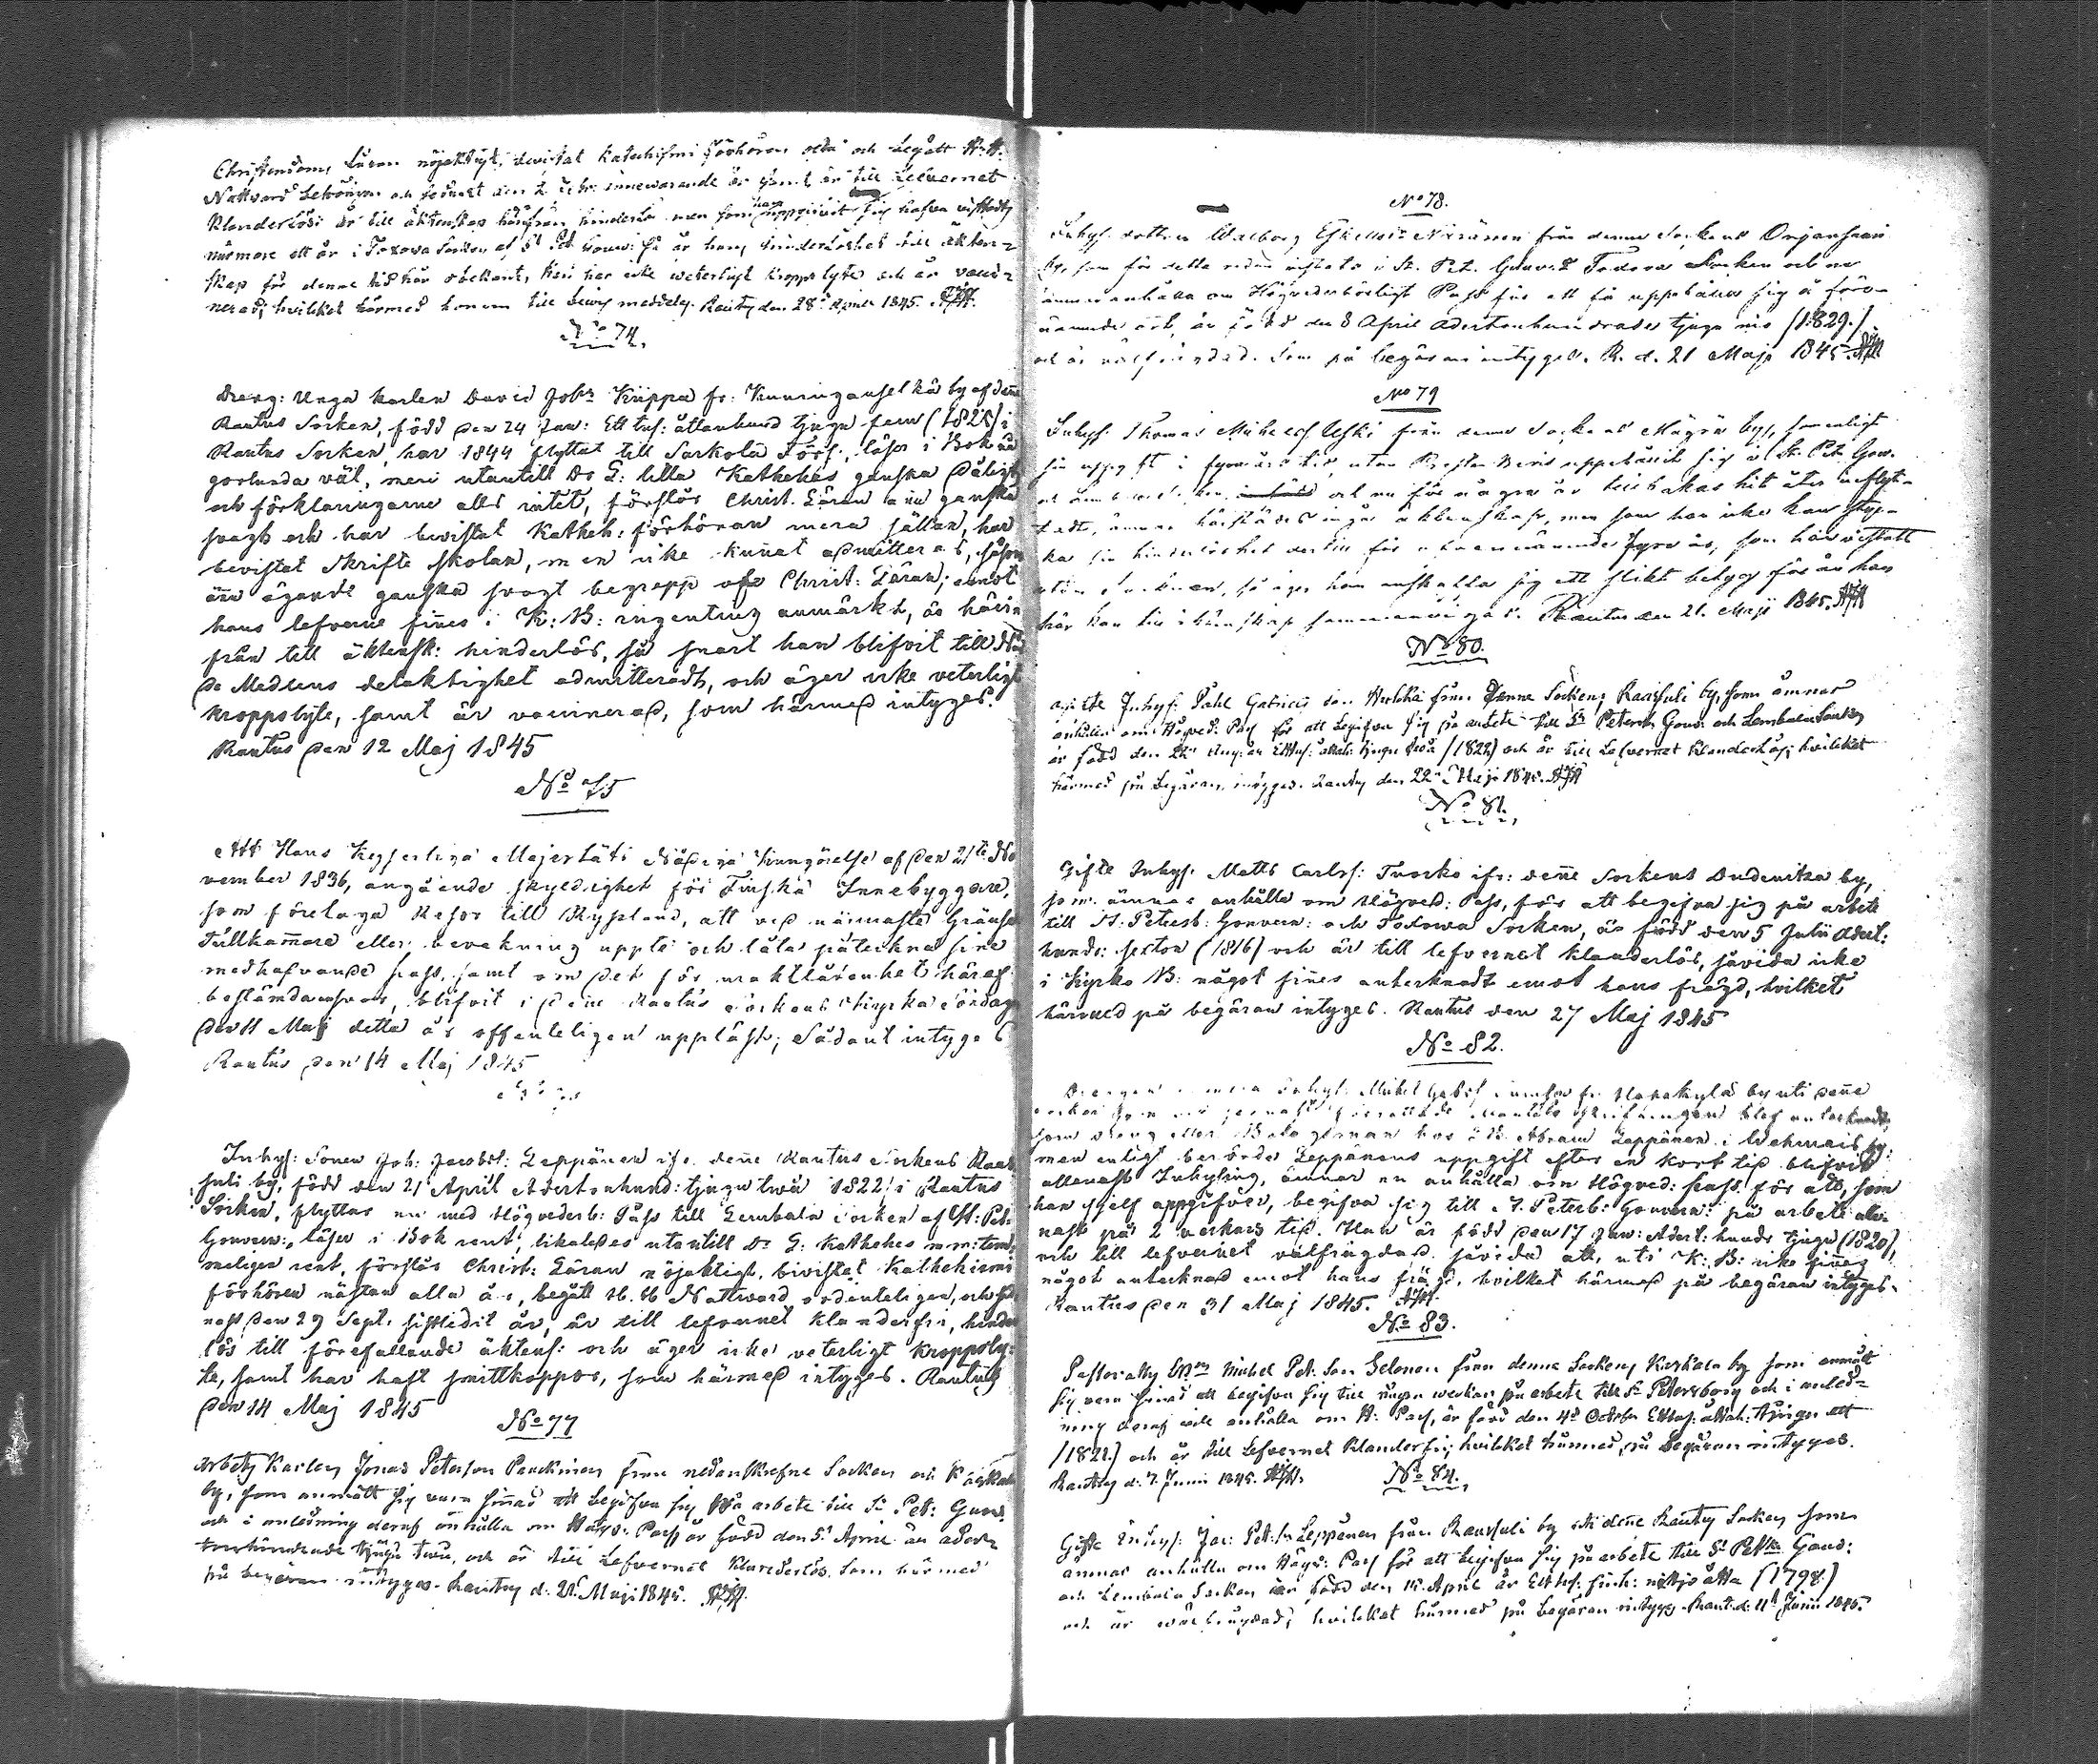 Christendoms Läran nöjaktigt, bewistat Katechismi Förhören ofta och begått H. H.
Nattvard innewarande år samt är till Lefvernet
Klanderlös är till äktenskap hinderlös men som han uppgivit sig hafva vistats
närmare ett år i Toxowa Socken af St Pet. Gouv: så är hans hinderlöshet till äkten-
skap för denne tid här obekant, han har icke weterligt kropps lyte och är vacci-
nerad; hvilket härmed honom till bewis meddelas. Rautus den 28de April 1845.
No 74.
Dreng: Unga karlen David Johs Kiippa fr: Kuninganselkä by af dene
Rautus Socken, född den 24 Jan: Ett tus: åttahund tjugu fem (1825) i
Rautus Socken, har 1844 flyttat till Sackola Förs:, läser i Bok nå-
gorlunda väl, men utantill Dr L: lilla Kathekes ganska dåligt
och förklaringarne alls intet, förstår Christ. Läran ännu ganska
svagt och har bevistat Kathek: förhören mera sällan, har
bevistat Skrifte skolan, men icke kunnat admitteras, såsom
ännu ägande ganska svagt begrepp om Christ: Läran; emot
hans lefverne finnes i K: B: ingenting anmärkt, är härin-
från till äktensk: hinderlös, så snart han blifvit till Nå-
de Medlens delaktighet admitterad, och äger icke veterligt
kroppslyte, samt är vaccinerad, som härmed intygas.
Rautus den 12 Maj 1845
No 75
Att Hans Kejserliga Majestäts Nådiga Kungörelse af den 21te No
vember 1836, angående skyldighet för Finska Innebyggare,
som företaga Resor till Ryssland, att vid närmaste Gräns
Tullkammare eller bevakning uppte och låta påteckna sine
medhafvande pass, samt om det för uraktlåtenhet häraf
bestämda ansvar, blifvit i dene Rautus Sockens Kyrka Söndagen
den 11 Maj detta år offentligen uppläst; Sådant intygas
Rautus den 14 Maj 1845
Inhys: Sonen Joh: Jacobs: Leppänen ifr. dene Rautus Sockens Raa-
suli by, född den 21 April Adertonhund: tjugu twå 1822 i Rautus
Socken, flyttar nu med Högvederb: Påss till Lembala Socken af St: Pet.
Gouvern:, läser i Bok rent, likaledes utantill Dr L: Kathekes m m: tem-
meligen rent, förstår Christ: Läran nöjaktigt, bivistat Kathekismi
förhören nästan alla år, begått H. H Nattward ordenteligen, och sed-
nast den 29 Sept. sistledit år, är till lefvernet klanderfri, hinder
lös till förefallande äktens: och äger icke veterligt kroppsly-
te, samt har haft smittkoppor, som härmed intygas. Rautus
den 14 Maj 1845
No 77
Arbets Karlen Jonas Peterson Penckinen från nedanskrefne Socken och
by, som anmält sig vara sinnad att begifva sig på arbete till St Pet: Guv.
och i anledning deraf anhålla om Högv: Pass är född den 5 April år ader-
tonhundrade tjugu Twå, och är till Lefvernet Klanderlös. Som härmed
på begäran intygas. Rautus d: 21 Maji 1845.
No 78.
Inhys. dottren Walborg från denna Sockens Orjansaari
by, som för detta redan vistats i St. Pet. Guv: Toxova Socken och nu
ämnar anhålla om Högvederbörligt Pass för att få uppehålla sig å för-
nämnde ort, är född den 8 April adertonhundrade tjugu nio (1829.)
och är välfrägdad. Som på begäran intygas. R. d. 21 Maji 1845.
No 79
Inhys: Thomas Uski från denna Sockens Mägrä by, som enligt
sin uppgift i fyra års tid, utan Prestabevis uppehållit sig i St. Pet. Gouv.
och nu för några år tillbakas hit åter inflyt-
tadt, ämnar härstädes ingå äktenskap, men som han icke kan sty-
ka sin hinderlöshet dertill för ofvannämnde fyra år, som han vistats
utom Socknen, så äger han anskaffa sig ett slikt betyg förän han
här kan till äktenskap sammanvigas. Rautus den 21. Maji 1845.
No 80.
Gifte Inhys: Påhl Gabriels son från Denne Sockens Raasuli by, som ämnar
anhålla om Högved: Pass för att begifva sig på arbete till St Petersb. Gouv. och Lembala Socken
är född den Aug: år Ett tus: åttah: tjugu två (1822) och är till Lefvernet Klanderlös; hvilket
härmed på begäran intygas. Rautus den 22 Maji 1845.
No 81.
Gifte Inhys. Matts Carls: Tuorko ifr: dene Sockens by,
som ämnar anhålla om Högved: Pass, för att begifva sig på arbete
till St. Petersb: Gouvern: och Toxowa Socken, är född den 5 Julii Adert:
hund: sexton (1816) och är till lefvernet klanderlös, såvida icke
i Kyrko B: något finnes antecknadt emot hans frägd, hvilket
härmed på begäran intygas. Rautus den 27 Maj 1845
No 82.
Inhys: Michel fr. Haapakylä by uti dene
Socken som vid sednast förrättade Mantals skrifningen blef antecknadt,
som dreng eller Bolagsman hos Abram Leppänen i Wehmais by:
men enligt berörde Leppänens uppgift efter en kort tid blifvit
allenast Inhysling, ämnar nu anhålla om Högved: pass. för att, som
han sjelf uppgifver, begifva sig till St. Petersb: Gouvern: på arbete alle-
nast på 2 veckors tid. Han är född den 17 Jan: Adert: hundr tjugu (1820),
och till lefvernet välfrägdad. såvida att, uti K: B: icke finnes
något antecknad emot hans frägd, hvilket härmed på begäran intygas.
Rautus den 31 Maj 1845.
No 83.
Michel Pet: Son Selonen från denna Sockens by som anmält
sig vara sinnad att begifva sig till några weckar på arbete till St Petersborg och i anled-
ning deraf will anhålla om H: Pass, är född den 4de October Ett tus: åttah: tjugu ett
(1821) och är till Lefvernet Klanderfri; hvilket härmed, på begäran intygas.
Rautus d: 7. Junii 1845.
No 84.
Gifte Inhys: Jac: Pet: sn Leppänen från Raasuli by uti dene Rautus Socken som
ämnar anhålla om Högv: Pass för att begifva sig på arbete till St Petb: Gouv:
och Lembala Socken är född den 15 April år Ett tus: sjuh: nittjo åtta (1798.)
och är wälfrägdad; hvilket härmed på begäran intygas. Raut. d: 11 Junii 1845.